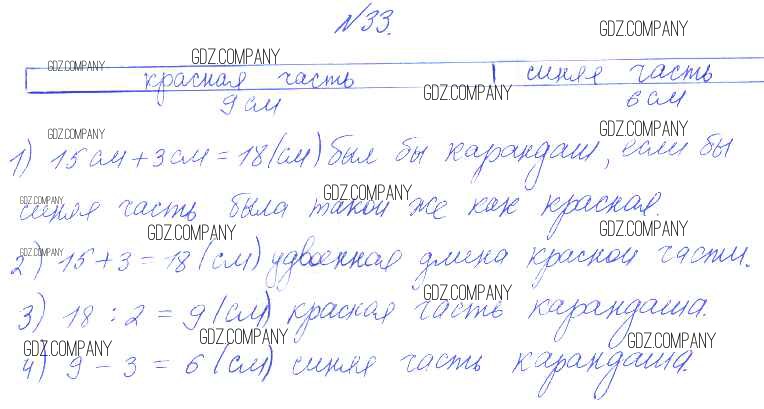 №33.
GDZ.COMPANY
GDZ.COMPANY
GDZ.COMPANY
красная часть синяя часть
GDZ.COMPANY
9 см 6 см
GDZ.COMPANY
GDZ.COMPANY
1) 15 см + 3 см = 18 (см) был бы карандаш, если бы
GDZ.COMPANY
GDZ.COMPANY
синяя часть была такой же как красная.
GDZ.COMPANY
GDZ.COMPANY
GDZ.COMPANY
2) 15 + 3 = 18 (см) удвоенная длина красной части.
GDZ.COMPANY
3) 18 : 2 = 9 (см) красная часть карандаша.
GDZ.COMPANY
GDZ.COMPANY
GDZ.COMPANY
4) 9 - 3 = 6 (см) синяя часть карандаша.